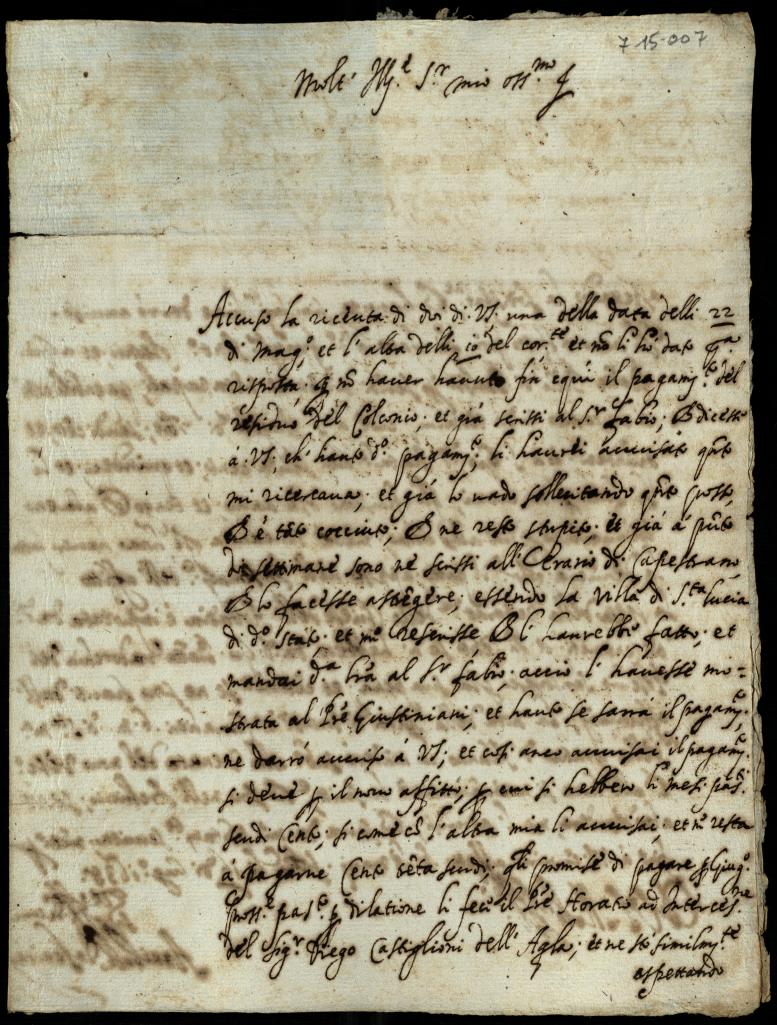 7-15-007
Molt' Ill.e S.r mio oss.mo
Accuso la riceuta di doi di VS. una della data delli 22
di mag.o et l'altra delli 10 del cor.te et nõ li hò dato q.a
risposta p nõ haver havuto fin equi il pagam.to del
residuo del Colonio. et già scrissi al S.r fabio, dicesse
à VS. ch' hauto d.o pagam.to, li haurei avvisato q.nto
mi ricercava, et già lo vado sollecitando q.nto posso,
è tãto cocciuto, ne resto stupito, et già à p.nto
doi settimane sono ne scrissi all' Erario di Capestrano
lo facesse astregere, essendo la villa di S.ta lucia
di d.o stato. et me rescrisse l' haurebbe fatto, et
mandai d.a lrã al S.r fabio, acciò l' havesse mo=
strata al Prẽ Giustiniani, et hauto se sarrà il pagam.to
ne darrò avviso à VS, et cosi anco avvisai il pagam.to
si deve p il novo affitto, p cui si hebbero li mesi pas.ti
scudi Cento, si come cõ l'altra mia li avvisai, et me resta
à pagarne Cento trẽta scudi, q.li promise di pagare p Giug.o
pross.o pas.to p dilatione li feci il Prẽ Horatio ad Interces.ne
del Sig.r Diego Castiglioni dell' Agla, et ne stò similm.te
aspettando